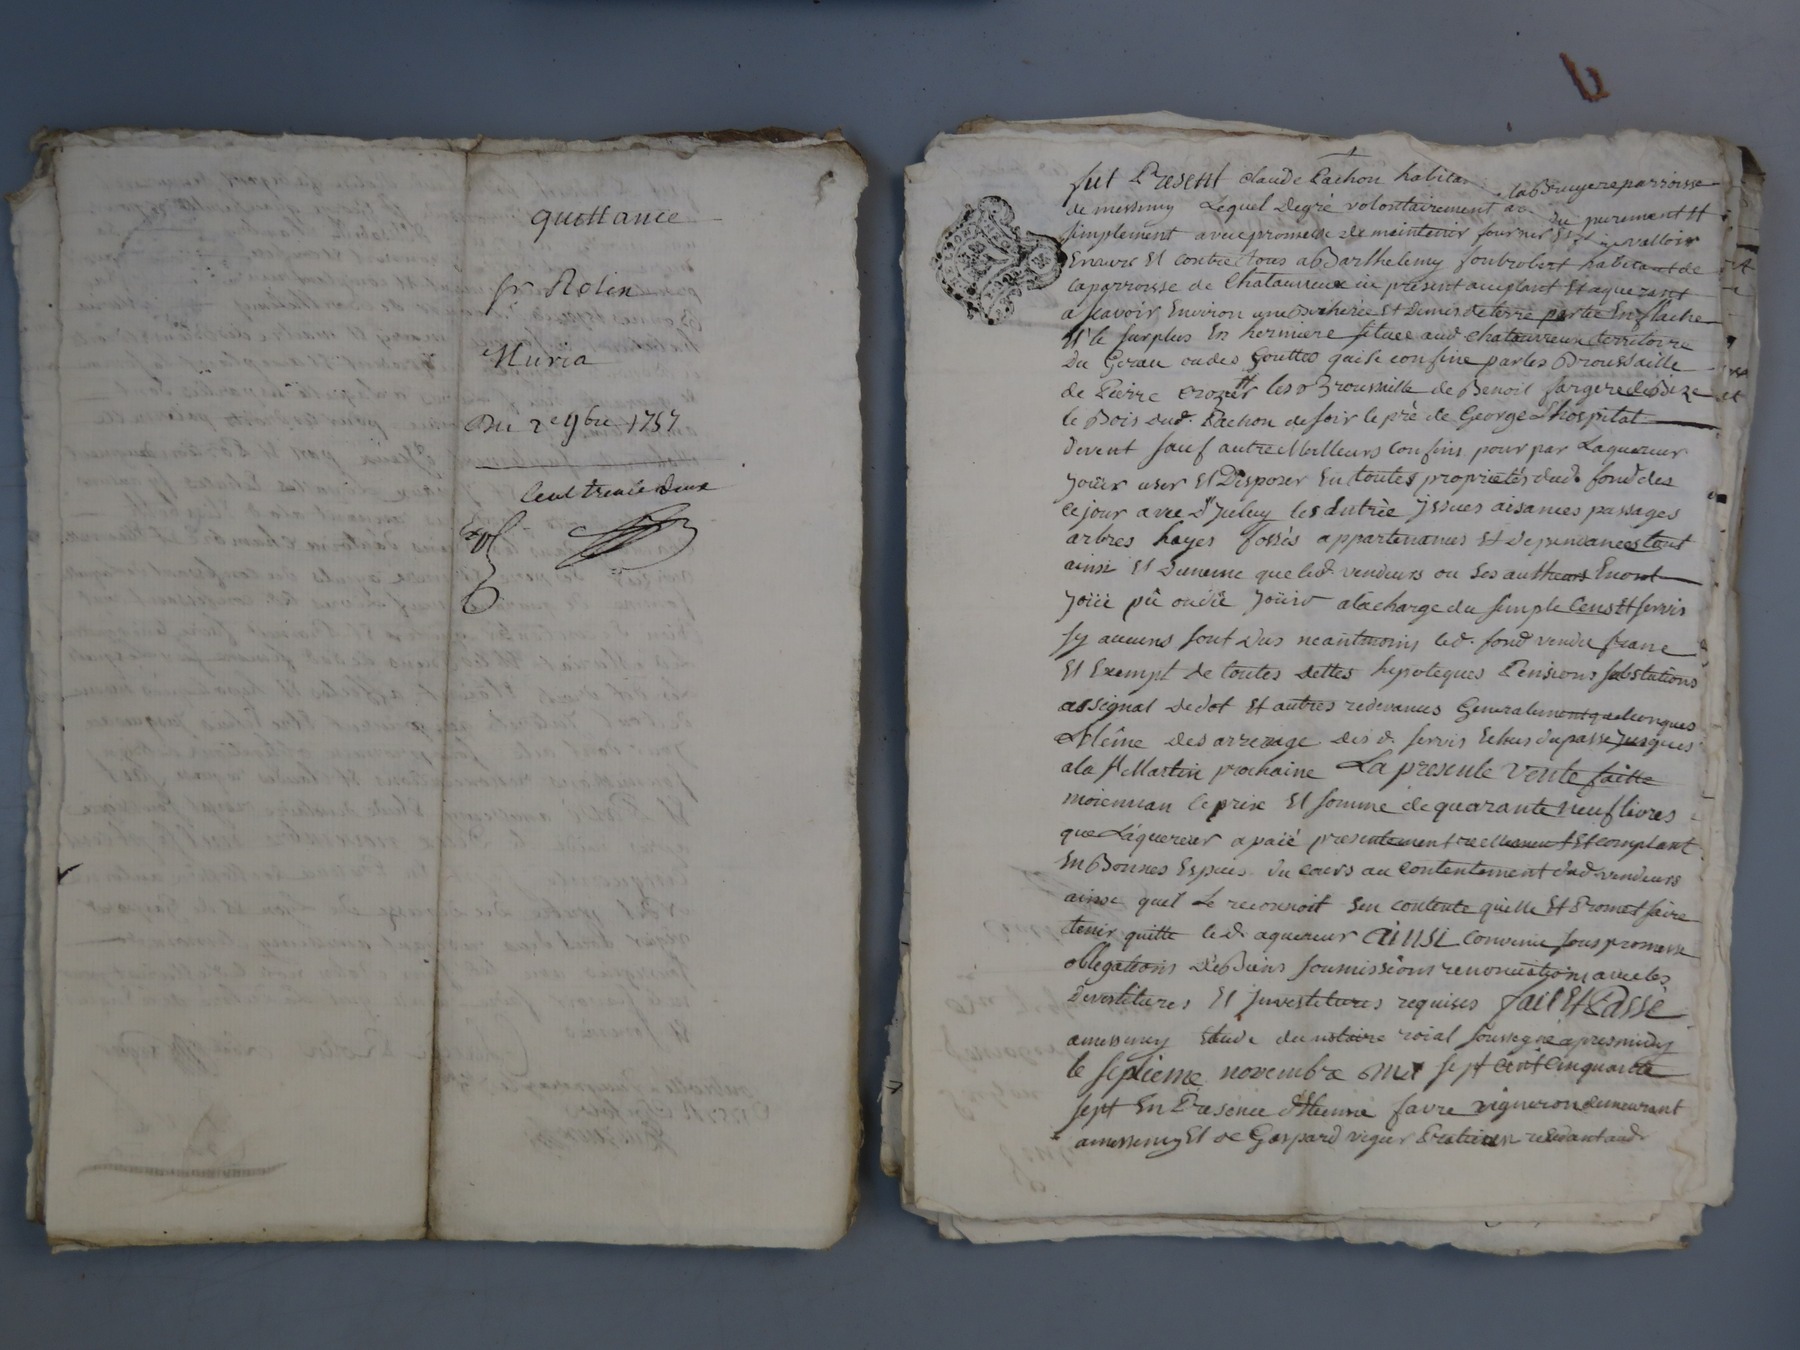 quittance
sr Rolin
Muria
Du 2e 9bre 1757
Cent trente deux
fut Present Claude Pachon habitan labruyere parroisse
de messimy Lequel De gré volontairement a du purement Et
simplement avec promesse de maintenir fournir Et valloir
Envers Et contre tous a Barthelemy fontrobert habitant de
la parroisse de Chatauvieux icy present acceptant Et aquerant
a scavoir Environ une Bicherée Et Demis de terre partie En
Et le surplus En hermiere situeé aud. Chatauvieux territoire
Du Gerau ou des Gouttes qui se confine par les Broussaille
de Pierre crozier Et les Broussaille de Benoit fargere de Bize
le Bois dud. Pachon de soir le pré de George Lhospital
Devent sauf autre Meilleurs Confins pour par Laquereur
Joüir user Et Disposer En toutes proprietés dud. fond des
ce jour avec D'Jceluy les Entrée Jssues aisances passages
arbres hayes fossés appartenances Et dependances tout
ainsi Et Dememe que led. vendeurs ou ses autheurs En ont
Joüi pû ou dû Joüir a la charge du simple Cens Et servis
sy aucuns sont Dus neantmoins led. fond vendu franc
Et Exempt de toutes dettes hipoteques Pensions substations
assignat De dot Et autres redevances Generalement quelconques
Même des arrerage des d. servis Echus du passé Jusques
a la st Martin prochaine La presente vente faitte
moiennan le prix Et somme de quarante neuf livres
que Laquereur a paié presentement reellement Et comptant
En Bonnes Especes du cours au contentement dud. vendeurs
ainsi quel Le reconnoit sen contente quitte Et Promet faire
tenir quitte led. aquereur ainsi convenu sous promesse
obligations De Biens soumissions renonciations avec les
Devestitures Et Jnvestitures requises fait Et Passé
a messimy Etude du notaire roial soussigné apres midy
le septieme novembre mil sept cent Cinquante
sept En Presence d'Etienne favre vigneron demeurant
a messimy Et de Gaspard vigier Praticien residant aud.